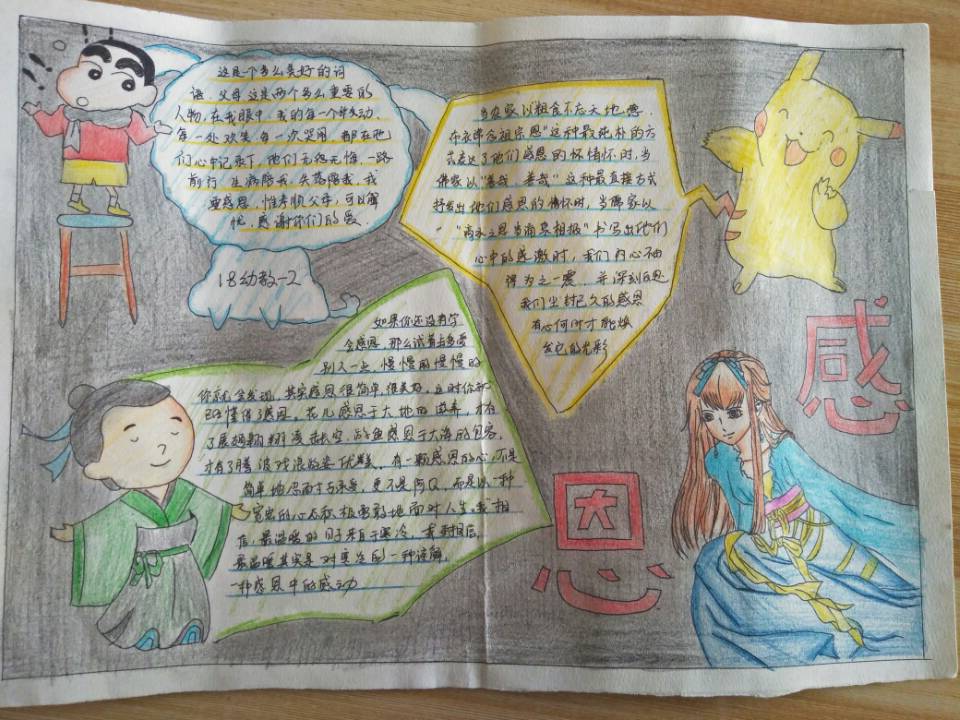 这是一个多么美好的词
语，父母这是两个多么重要的
人物，在我眼中，我的每一个种感动
每一处欢笑每一次哭闹 都在他
们心中记录下，他们无怨无悔，一路
前行 生病陪我，失落陪我，我
要感恩，惟孝顺父母，可以解
忧，感谢你们的爱.
18幼教-2
当农家以粗食不忘天地恩.
布衣常念祖宗恩"这种最纯朴的方
式表达了他们感恩的怀情怀时，当
佛家以"善哉，善哉"这种最直接方式
抒发出他们感恩的情怀时，当儒家以
"滴水之恩当涌泉相报"书写出他们
心中的感激时，我们内心不由
得为之一震，并深刻反思
我们尘封已久的感恩
有心何时才能焕
发它的光彩
如果你还没有学
会感恩，那么试着去多爱
别人一点，慢慢的慢慢的
你就会发现，其实感恩很简单，很美好，这时你就
已经懂得了感恩，花儿感恩于大地的滋养，才有
了展翅翱翔凌击长空，鱼感恩于大海的包容，
才有了腾波戏浪的姿优美，有一颗感恩的心，不是
简单地忍而去与承受，更不是阿Q，而是以一种
宽宏的心态积极勇敢地面对人生，我相
信，最温暖的日子来自于寒冷，我相信，
最温暖其实是对寒冷的一种谅解
一种感恩中的感动
感
恩